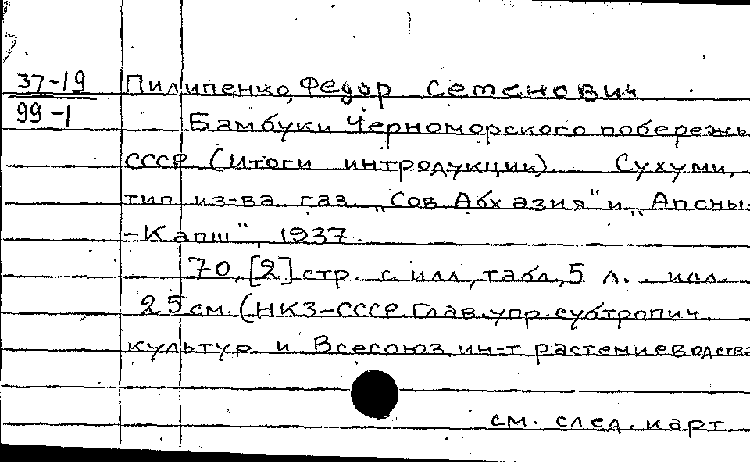 37-19 Пилипенко, Федор Семенович
99-1 Бамбуки Черноморского побережь
СССР (Итоги интродукции). Сухуми,
тип. из-ва газ. „Сов. Абхазия" и „Апсны-
-Капш", 1937.
70, [2] стр. с илл., табл., 5 л. илл.
25 см. (НКЗ-СССР. Глав. упр. субтропич.
культур и Всесоюз. ин-т растениеводства
см. след. карт.